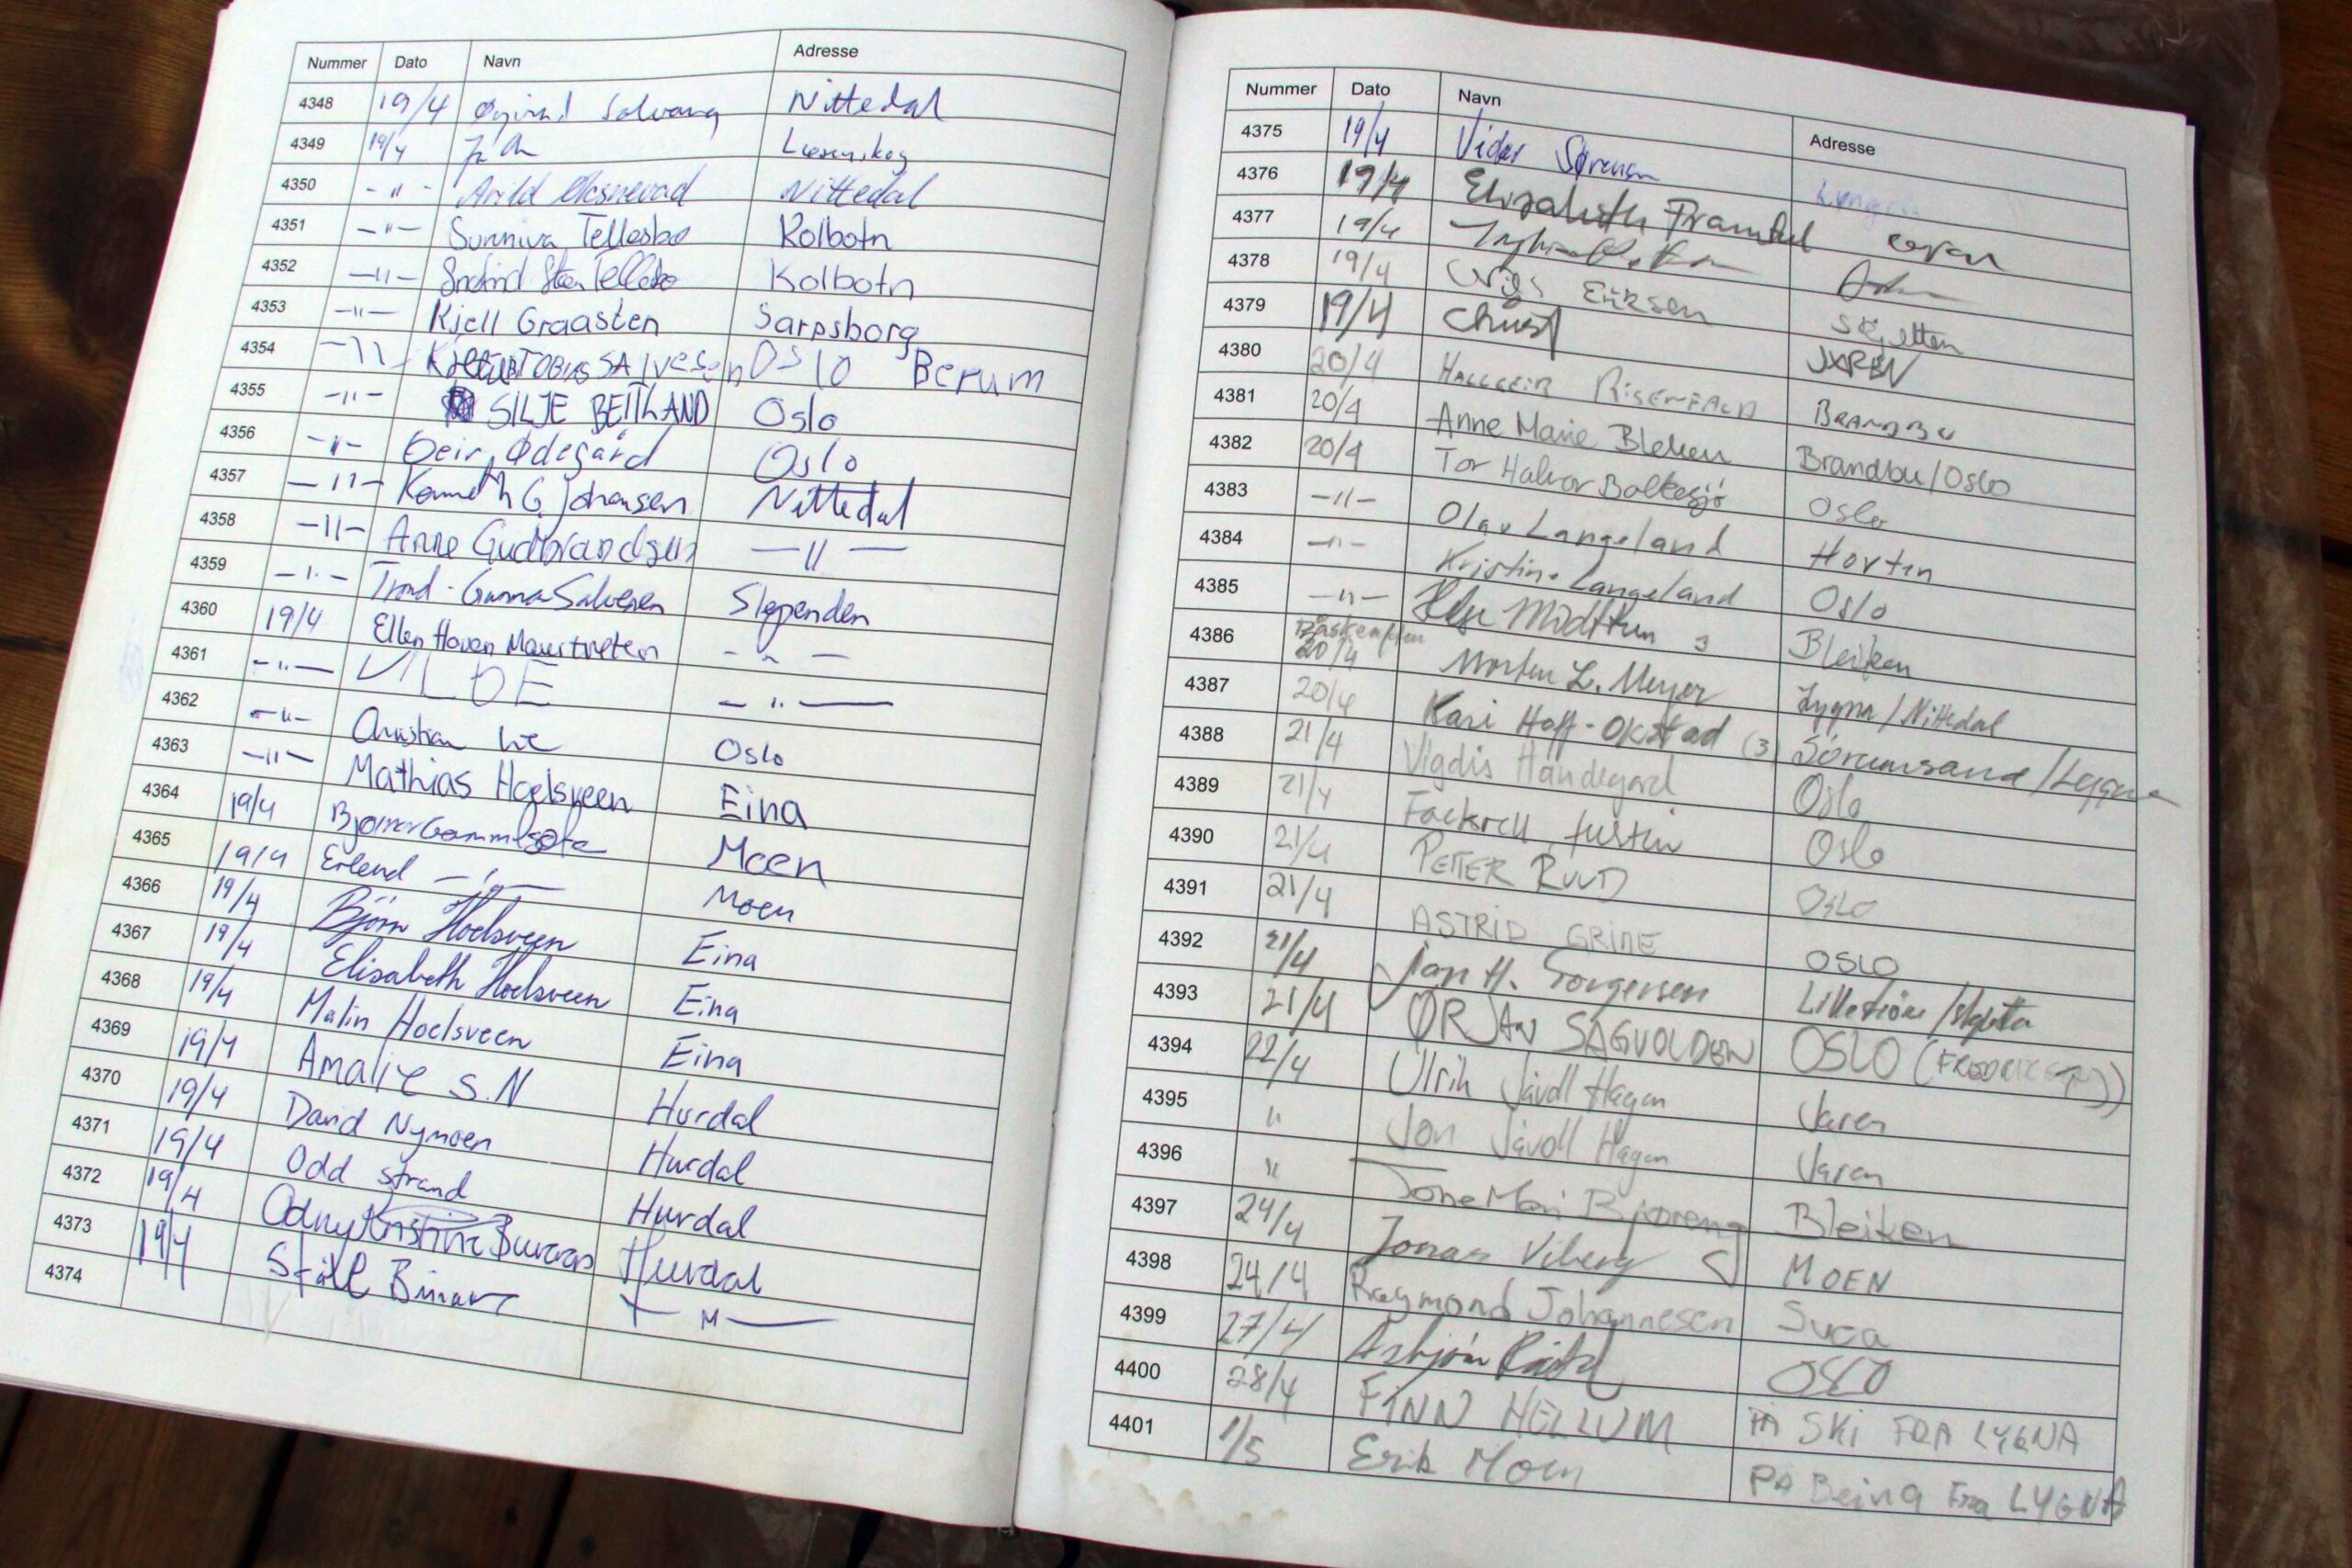 Nummer Dato Navn Adresse
4348 19/4 Øyvind Solvang Nittedal
4349 19/4
4350 - " - Arild Nittedal
4351 - " - Sunniva Tellesbø Kolbotn
4352 - " - Kolbotn
4353 - " - Kjell Graasten Sarpsborg
4354 - " - TOBIAS SALvesen OSlO Berum
4355 - " - SILJE Oslo
4356 - " - Geir Ødegård Oslo
4357 - " - Kenneth G. Johansen Nittedal
4358 - " - Anne Gudbrandsen - " -
4359 - " - Trond-Gunnar Salvesen Slependen
4360 19/4 Ellen Hoven - " -
4361 - " - VILDE - " -
4362 - " - Christian Oslo
4363 - " - Mathias Hoelsveen Eina
4364 19/4 Moen
4365 19/4 Erlend - " - Moen
4366 19/4 Bjørn Hoelsveen Eina
4367 19/4 Elisabeth Hoelsveen Eina
4368 19/4 Malin Hoelsveen Eina
4369 19/4 Amalie S.N Hurdal
4370 19/4 David Nymoen Hurdal
4371 19/4 Odd Strand Hurdal
4372 19/4 Odny Kristine Hurdal
4373 19/4 Ståle - " -
4374
Nummer Dato Navn Adresse
4375 19/4 Vidar Sørensen
4376 19/4 Elisabeth
4377 19/4
4378 19/4 Eriksen Skjetten
4379 19/4 JAREN
4380 20/4 BRANDBU
4381 20/4 Anne Marie Bleken Brandbu/Oslo
4382 20/4 Tor Halvor Bolkesjø Oslo
4383 - " - Olav Langeland Horten
4384 - " - Kristine Langeland Oslo
4385 - " - Bleiken
4386 Påskeaften 20/4 Morten L. Meyer Lygna/Nittedal
4387 20/4 Kari Hoff-Okstad (3) Sørumsand/Lygna
4388 21/4 Vigdis Handegard Oslo
4389 21/4 Fackrell, Justin Oslo
4390 21/4 PETTER RUUD OSLO
4391 21/4 ASTRID GRINE OSLO
4392 21/4 Jan H. Jorgensen
4393 21/4 ØRJAN SAGVOLDEN OSLO
4394 22/4 Ulrik Jávoll Hagen Jaren
4395 " Jon Jávoll Hagen Jaren
4396 " Tone Mari Bjøreng Bleiken
4397 24/4 Jonas Viberg MOEN
4398 24/4 Raymond Johannesen
4399 27/4 Asbjørn OSLO
4400 28/4 FINN HELLUM PÅ SKI FRA LYGNA
4401 1/5 Erik Moen PÅ Beina Fra LYGNA